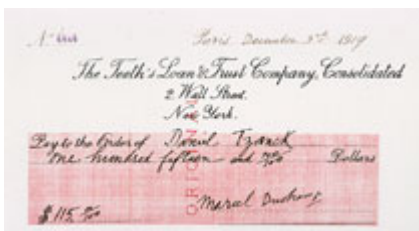 Nº
Paris December 3rd 1919
The Teeth's Loan & Trust Company, Consolidated
2 Wall Street.
New York.
Pay to the Order of Daniel Tzanck
one hundred fifteen and no/100 Dollars
ORIGINAL
Marcel Duchamp
$ 115 no/100